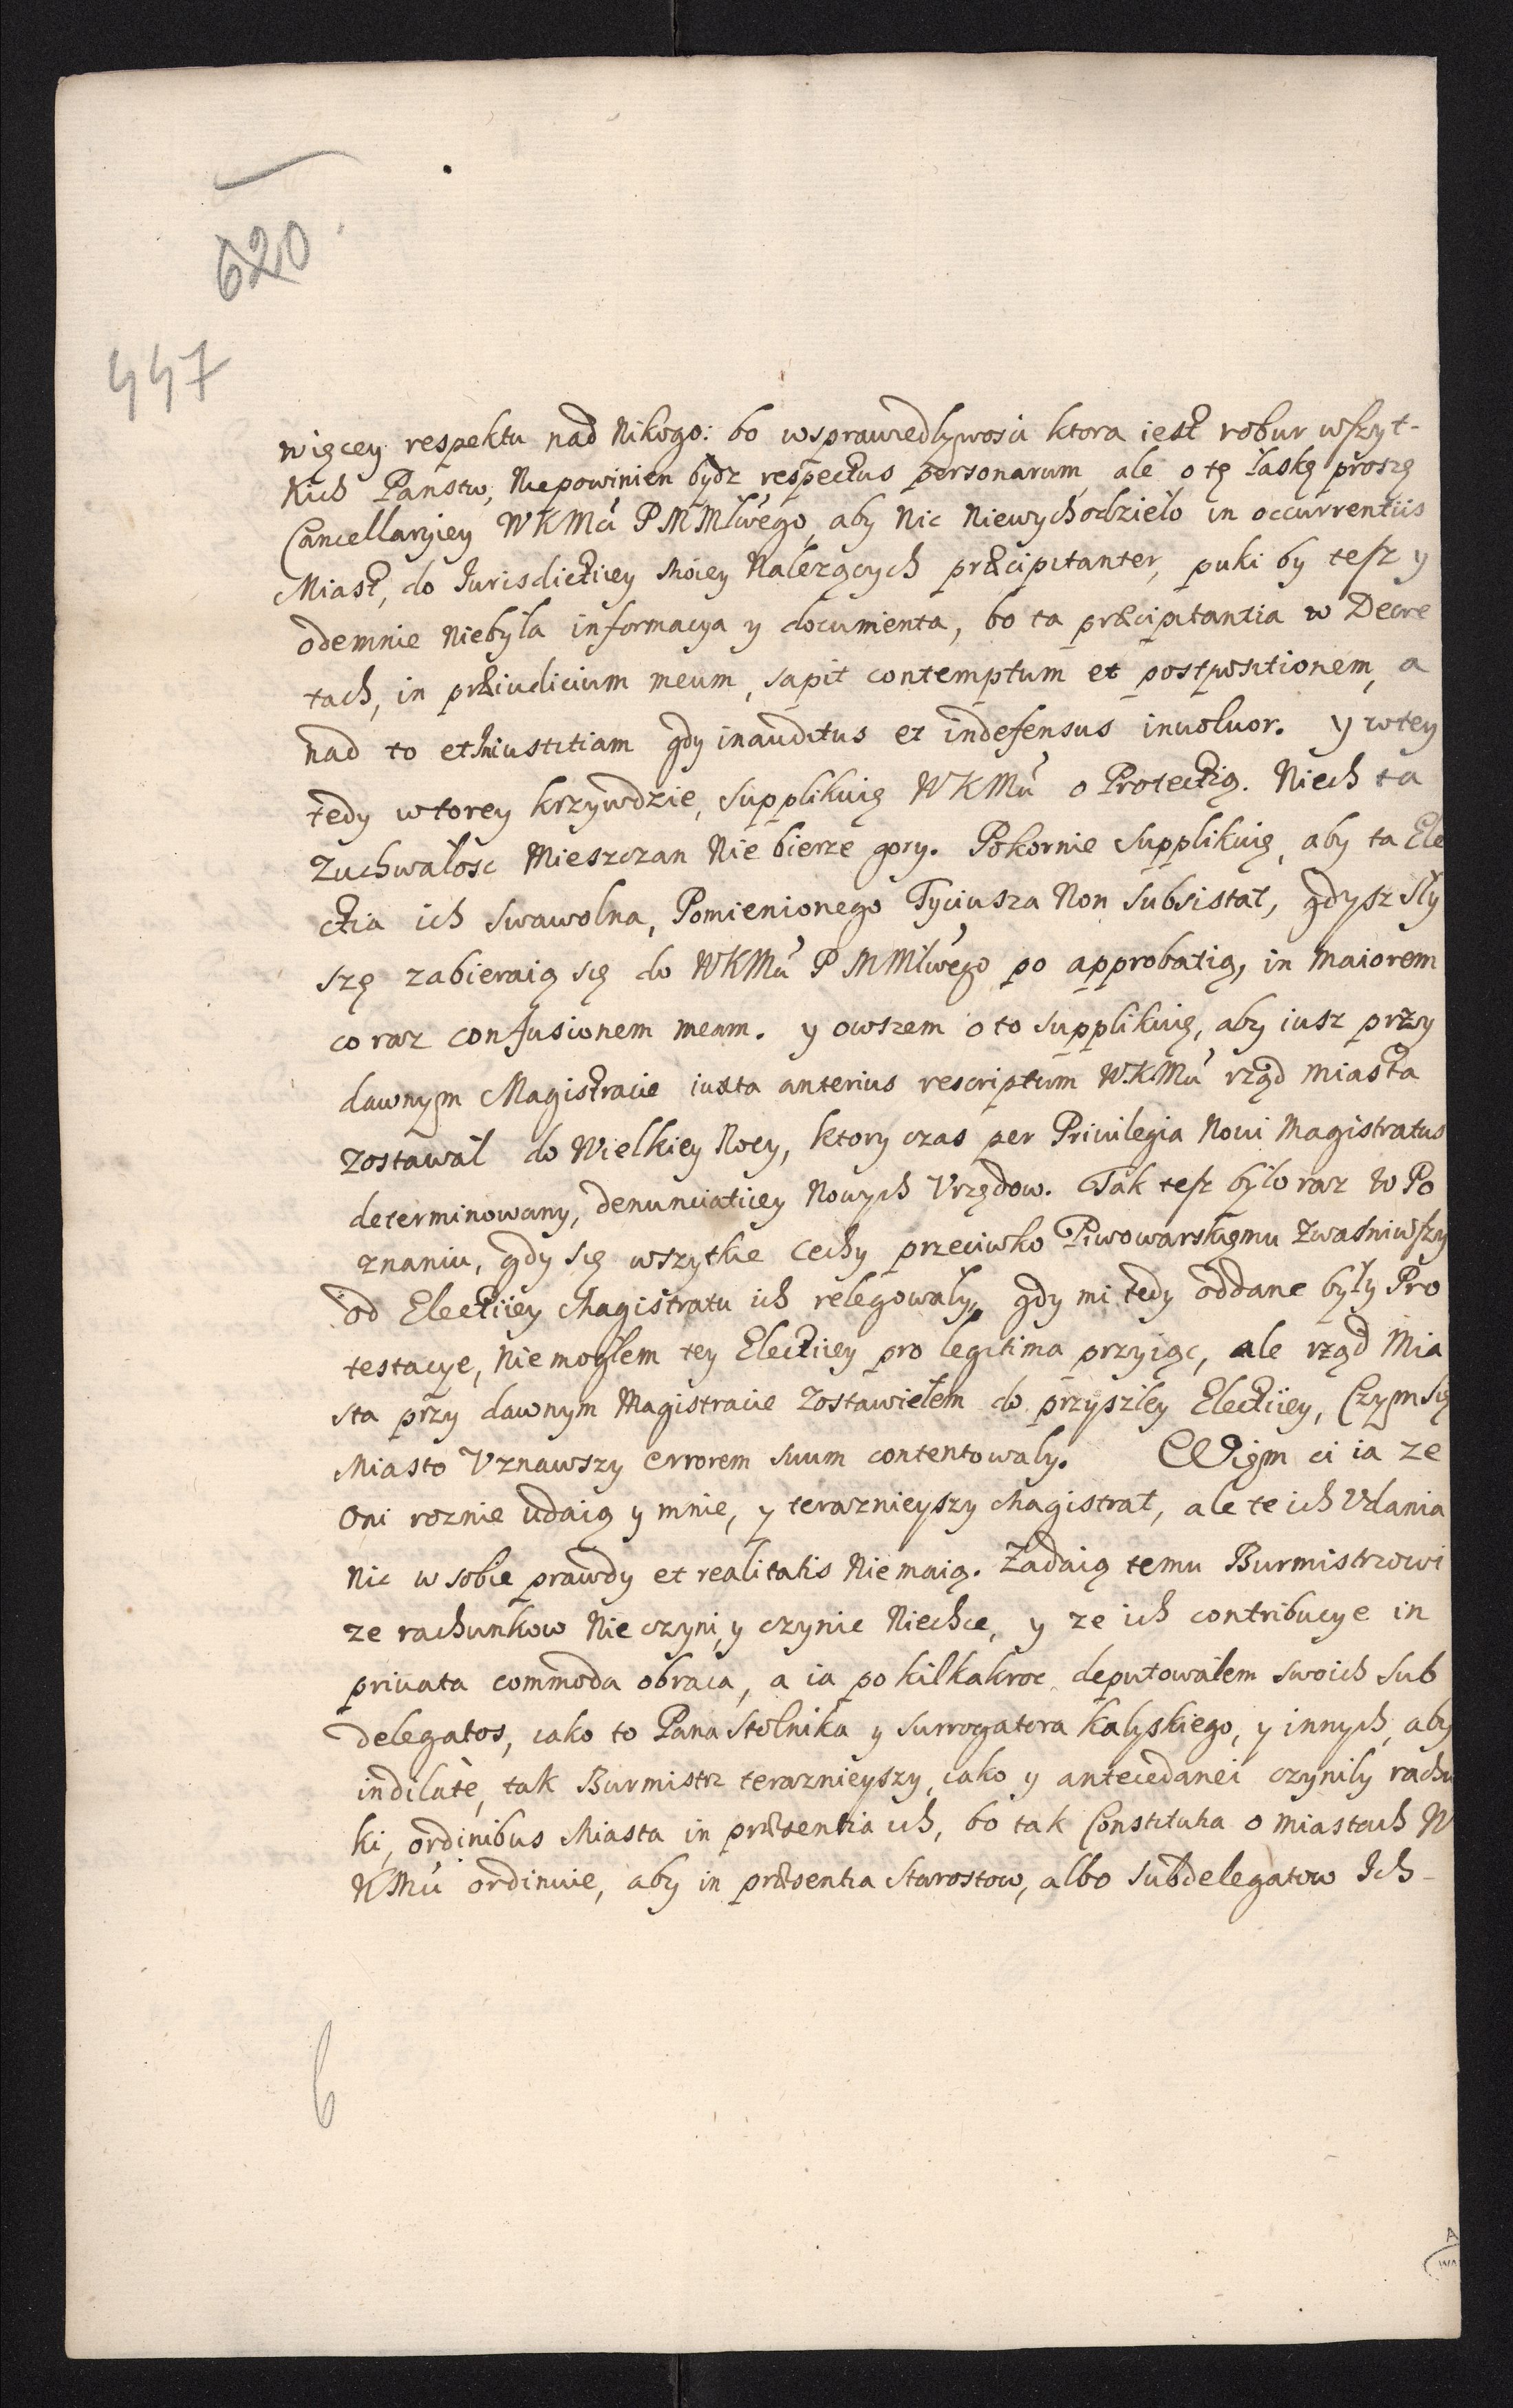 620
447
więcey respektu nad Nikogo: bo wsprawiedlywosci ktora iest robur wszyt-
kich Panstw, Niepowinien bydz respectus personarum, ale o tę łaskę proszę
Cancellaryiey WKMci PMMłwego, aby Nic Niewychodzieło in occurrentiis
Miast, do Jurisdictiey Moiey Nalezących præcipitanter, puki by tesz y
odemnie Niebyła informacya y documenta, bo ta præcipitantia w Decre
tach, in præiudicium meum, sapit contemptum et postpositionem, a
nad to et Iniustitiam gdy inauditus et indefensus involvor. y wtey
tedy wtorey krzywdzie, supplikuię WKMci o Protectią. Niech ta
Zuchwałosc Mieszczan Nie bierze gory. Pokornie supplikuię, aby ta Ele
ctia ich swawolna, Pomienionego Tyciusza Non subsistat, gdysz sły
szę zabieraią się do WKMci P MMłwego po approbatią, in maiorem
co raz confusionem meam. y owszem o to supplikuię, aby iusz przy
dawnym Magistracie iuxta anterius rescriptum W.K.Mci rząd miasta
zostawał do Wielkiey Nocy, ktory czas per Privilegia Novi Magistratus
determinowany, denunciatiey Nowych Vrzędow. Tak tesz było raz w Po
znaniu, gdy się wszytkie Cechy przeciwko Piwowarskiemu Zwasniwszy
od Electiiey Magistratu ich relegowały, gdy mi tedy oddane były Pro
testacye, Niemogłem tey Electiiey pro legitima przyiąc, ale rząd Mia
sta przy dawnym Magistracie zostawiełem do przyszłey Electiiey, Czym się
Miasto Vznawszy errorem suum contentowały. Wiem ci ia ze
Oni roznie udaią y mnie, y teraznieyszy Magistrat, ale te ich Vdania
Nic w sobie prawdy et realitatis Niemaią. Zadaią temu Burmistrzowi
ze rachunkow Nie czyni, y czynic Niechce, y ze ich contribucye in
privata commoda obraca, a ia po kilkakroc deputowałem swoich Sub
delegatos, iako to Pana Stolnika y Surrogatora Kalyskiego, y innych, aby
indilatè, tak Burmistrz teraznieyszy, iako y antecedanei czynily rachu
ki, ordinibus Miasta in præsentia ich, bo tak Constitutia o miastach W
KMci ordinuie, aby in præsentia Starostow, albo Subdelegatow Ich-